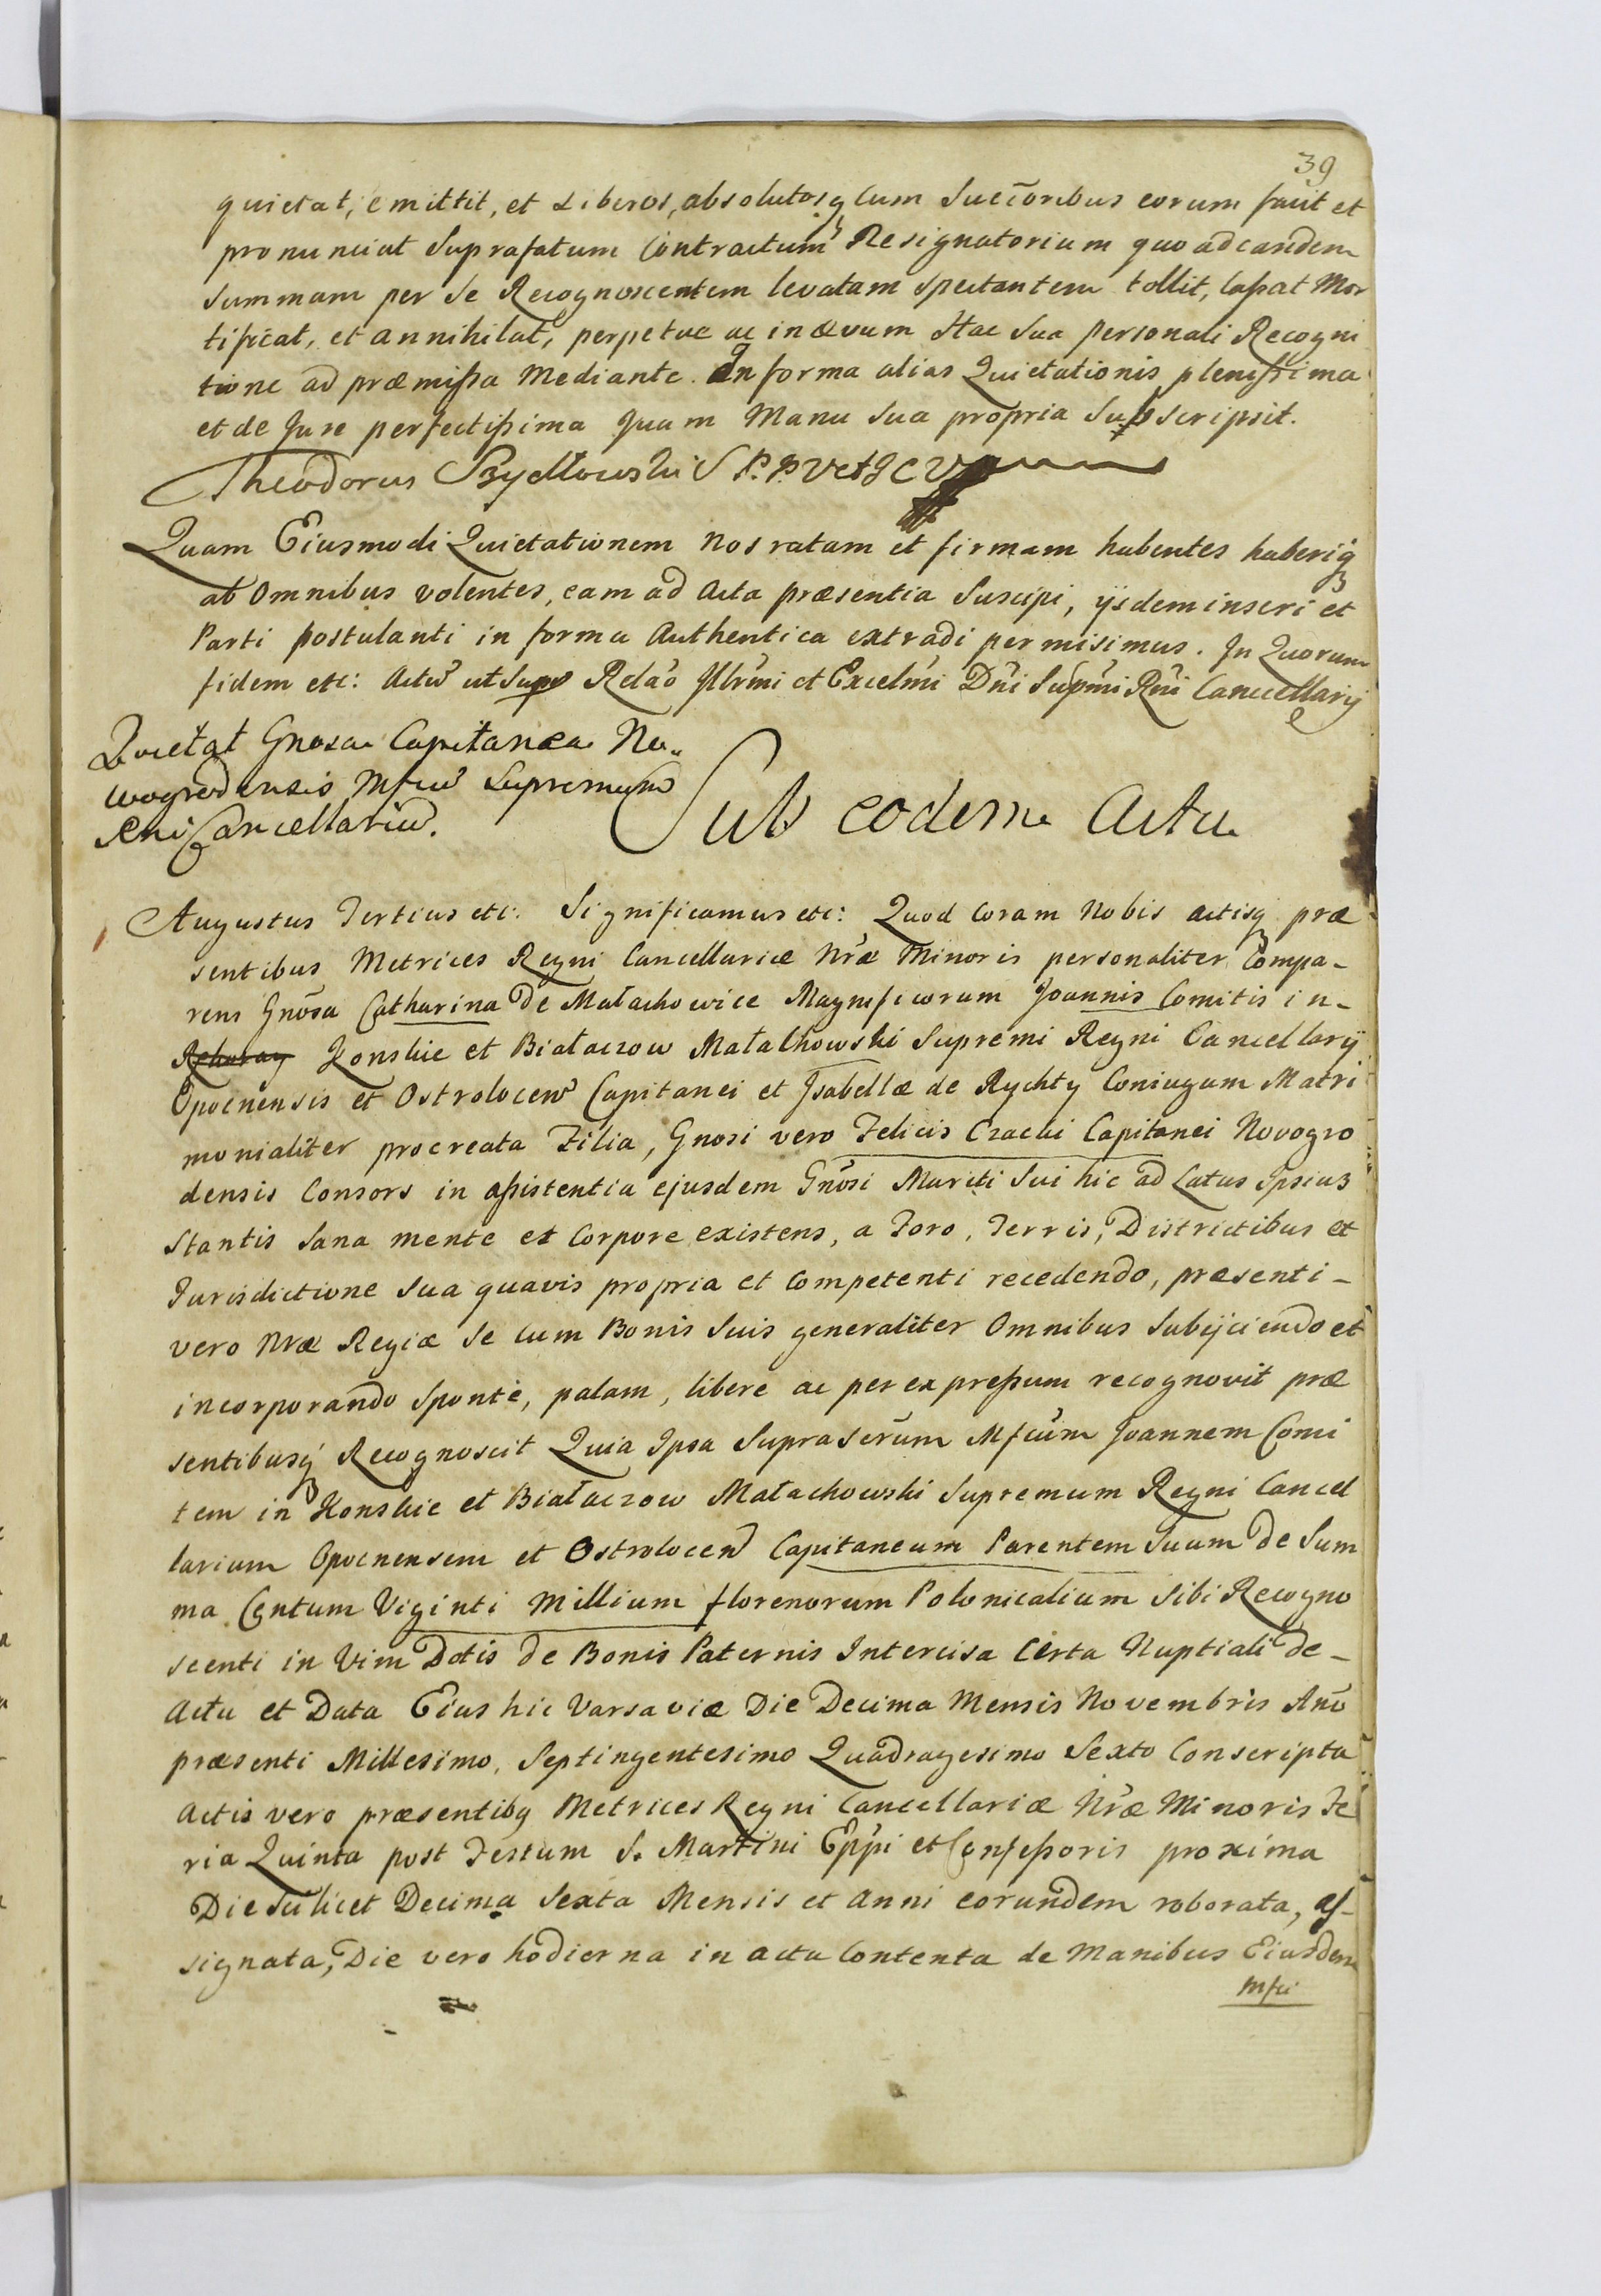 39
quietat, emittit, et Liberos, absolutosq cum Succoribus eorum facit et
pronunciat Suprafatum Contractum Resignatorium quo ad eandem
Summam per Se Recognoscentem levatam Spectantem tollit, Caßat Mor
tificat, et annihilat, perpetue ac in ævum Hac Sua personali Recogni
tione ad præmißa Mediante. In forma alias Quietationis plenißima
et de Jure perfectißima Quam Manu Sua propria Subscripsit.
Theodorus Bydłowski S P. P. V et J C V
Quam Eiusmodi Quietationem Nos ratam et firmam habentes haberiq
ab Omnibus volentes, eam ad Acta præsentia Suscipi, ijsdem inseri et
Parti postulanti in forma Authentica extradi permisimus. In Quorum
fidem etc: Actũ ut Supr Relão Illrmi et Excelmi Dñi Supmi Rñi Cancellarij
Quietat Gnosa Capitanea No„
wogrodensis Mfcũ Supremum
Rni Cancellariũ.
Sub eodem Actu
Augustus Tertius etc: Significamus etc: Quod Coram Nobis actisq præ
sentibus Metrices Regni Cancellariæ Nræ Minoris personaliter Compa-
rens Gnosa Catharina de Małachowice Magnificorum Joannis Comitis in-
Konskie et Białaczow Małachowski Supremi Regni Cancellarij
Opocnensis et Ostrolocen Capitanei et Isabellæ de Rychty Coniugum Matri
monialiter procreata Filia, Gnosi vero Felicis Czacki Capitanei Novogro
densis Consors in aßistentia ejusdem Gnosi Mariti Sui hic ad Latus Ipsius
Stantis Sana mente et Corpore existens, a Foro, Terris, Districtibus et
Jurisdictione Sua quavis propria et Competenti recedendo, præsenti-
vero Nræ Regiæ Se cum Bonis Suis generaliter Omnibus Subijciendo et
incorporando Sponte, palam, libere ac per expreßum recognovit præ
sentibusq Recognoscit Quia Ipsa Suprascrũm Mfcũm Joannem Comi
tem in Konskie et Białaczow Małachowski Supremum Regni Cancel
larium Opocnensem et Ostrolocen Capitaneum Parentem Suum de Sum
ma Centum Viginti Millium florenorum Polonicalium Sibi Recogno
scenti in Vim Dotis de Bonis Paternis Intercisa Certa Nuptiali de-
Actu et Data Eius hic Varsaviæ Die Decima Mensis Novembris Anõ
præsenti Millesimo, Septingentesimo Quadragesimo Sexto Conscripta
Actis vero præsentibq Metrices Regni Cancellariæ Nræ Minoris Fe
ria Quinta post Festum S. Martini Eppi et Confeßoris proxima
Die Scilicet Decima Sexta Mensis et Anni eorundem roborata, as-
signata, Die vero hodierna in actu Contenta de Manibus Eiusdem
Mfci